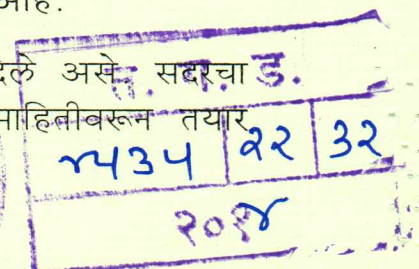 आहे.
देले असे सदरचा ड.
माहितीवरून तयार
५४३५ २२ ३२
२०१४